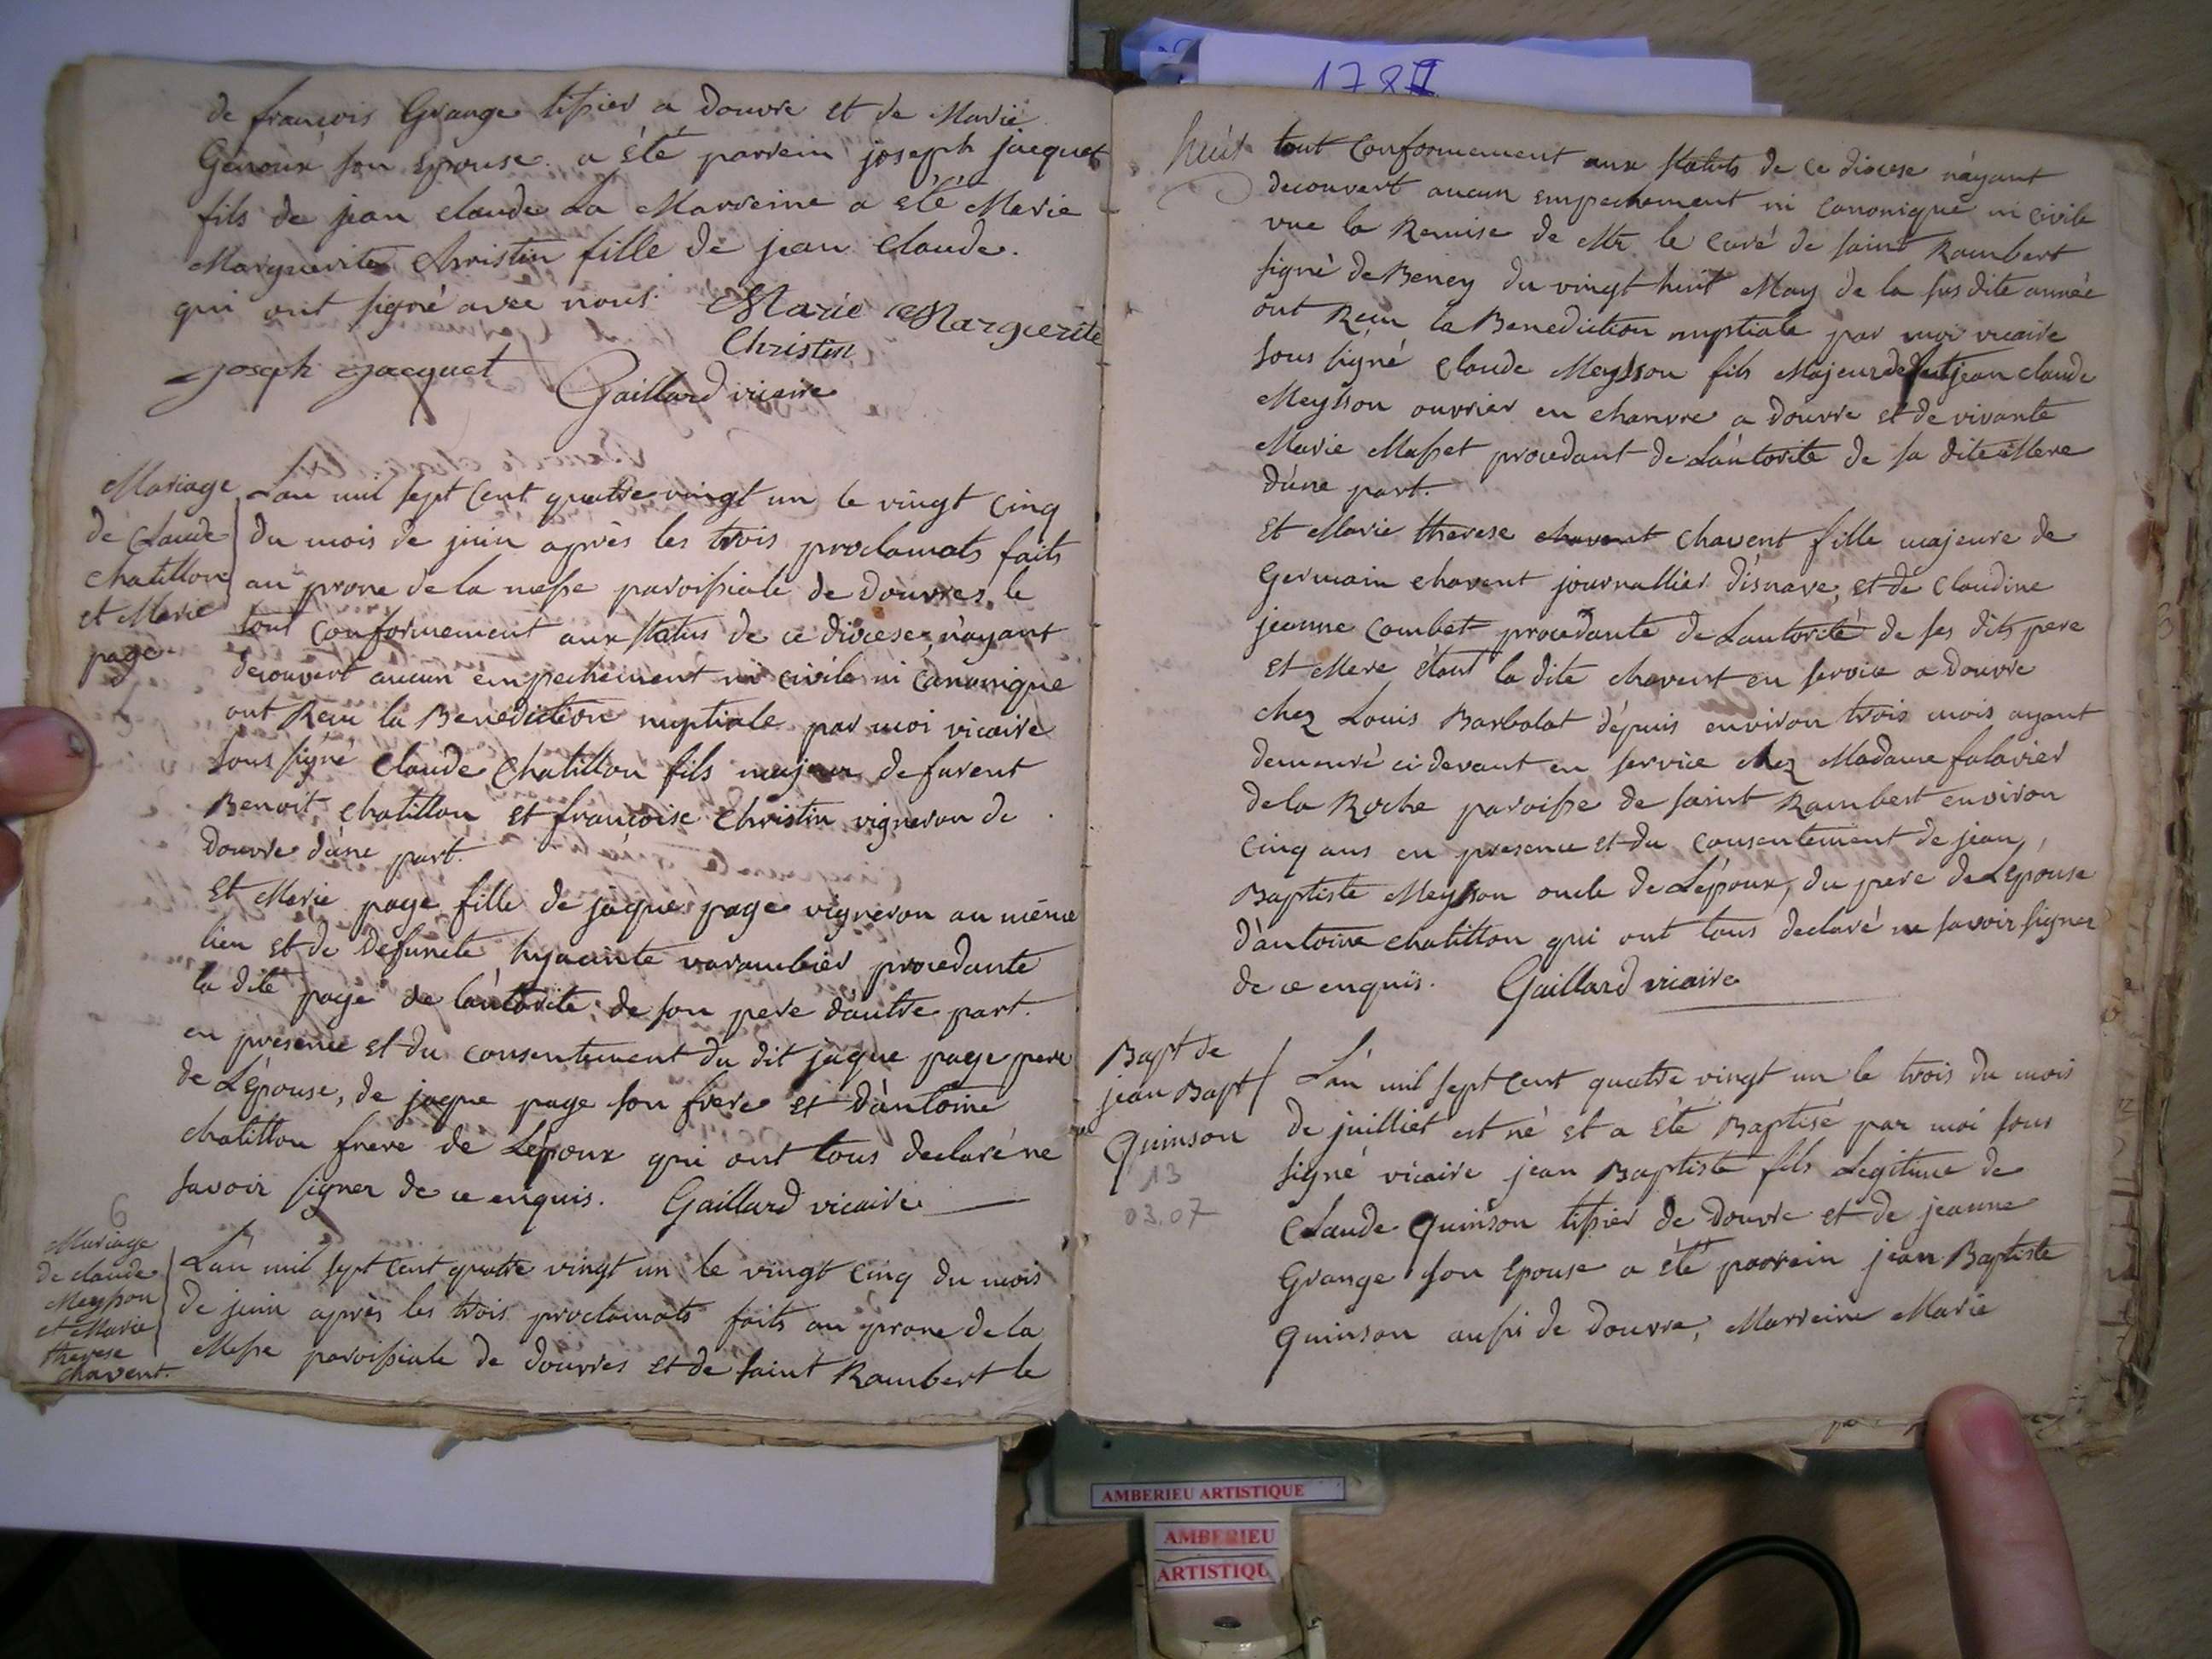 1781
de françois Grange tissier a douvre et de Marie
Genoux son epouse. a été parrein joseph jacquet
fils de jean claude La Marreine a été Marie
Marguerite Christin fille de jean claude.
qui ont signé avec nous. Marie Marguerite
Christin
joseph jacquet Gaillard vicaire
Mariage
de claude
chatillon
et Marie
page
Lan mil sept cent quatre vingt un le vingt cinq
du mois de juin après les trois proclamats faits
au prone de la messe paroissiale de douvres, le
tout conformement aux status de ce diocese, n'ayant
decouvert aucun empechement ni civile ni canonique
ont Reçu la Benediction nuptiale par moi vicaire
sous signé claude chatillon fils majeur de furent
Benoit chatillon et françoise christin vigneron de
douvre d'une part.
et Marie page fille de jaque page vigneron au même
lieu et de defuncte hyacinte varambier procedante
la dite page de l'autorite de son pere d'autre part.
en présence et du consentement du dit jaque page pere
de L'épouse, de jaque page son frere et d'antoine
chatillon frere de L'epoux qui ont tous declaré ne
savoir signer de ce enquis. Gaillard vicaire
6
Mariage
de claude
Meysson
et Marie
therese
chavent.
L'an mil sept cent quatre vingt un le vingt cinq du mois
de juin après les trois proclamats faits au prone de la
Messe paroissiale de douvres et de saint Rambert le
huit
tout conformement aux statuts de ce diocese n'ayant
decouvert aucun empechement ni canonique ni civile
vue la Remise de Mr le curé de saint Rambert
signé de Beney du vingt huit May de la susdite année
ont Reçu la Benediction nuptiale par moi vicaire
sous signé claude Meysson fils Majeur de fut jean claude
Meysson ouvrier en chanvre a douvre et de vivante
Marie Masset procedant de L'autorite de sa dite Mere
d'une part.
et Marie therese chavent chavent fille majeure de
Germain chavent journallier d'isnave, et de claudine
jeanne combet procedante de L'autorité de ses dits pere
et Mere étant la dite chavent en service a douvre
chez Louis Barbolat depuis environ trois mois ayant
demeuré ci devant en service chez Madame falavier
de la Roche paroisse de saint Rambert environ
cinq ans en presence et du consentement de jean
Baptiste Meysson oncle de L'époux, du pere de L'épouse
d'antoine chatillon qui ont tous declaré ne savoir signer
de ce enquis. Gaillard vicaire
Bapt de
jean Bapt
Quinson
13
03.07
L'an mil sept cent quatre vingt un le trois du mois
de juilliet est né et a été Baptisé par moi sous
signé vicaire jean Baptiste fils Legitime de
Claude Quinson tissier de douvre et de jeanne
Grange son Epouse a été parrein jean Baptiste
Quinson aussi de douvre, Marreine Marie
AMBERIEU ARTISTIQUE
AMBERIEU
ARTISTIQU